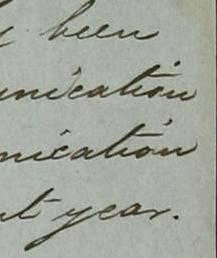 been
unication
nication
t year.